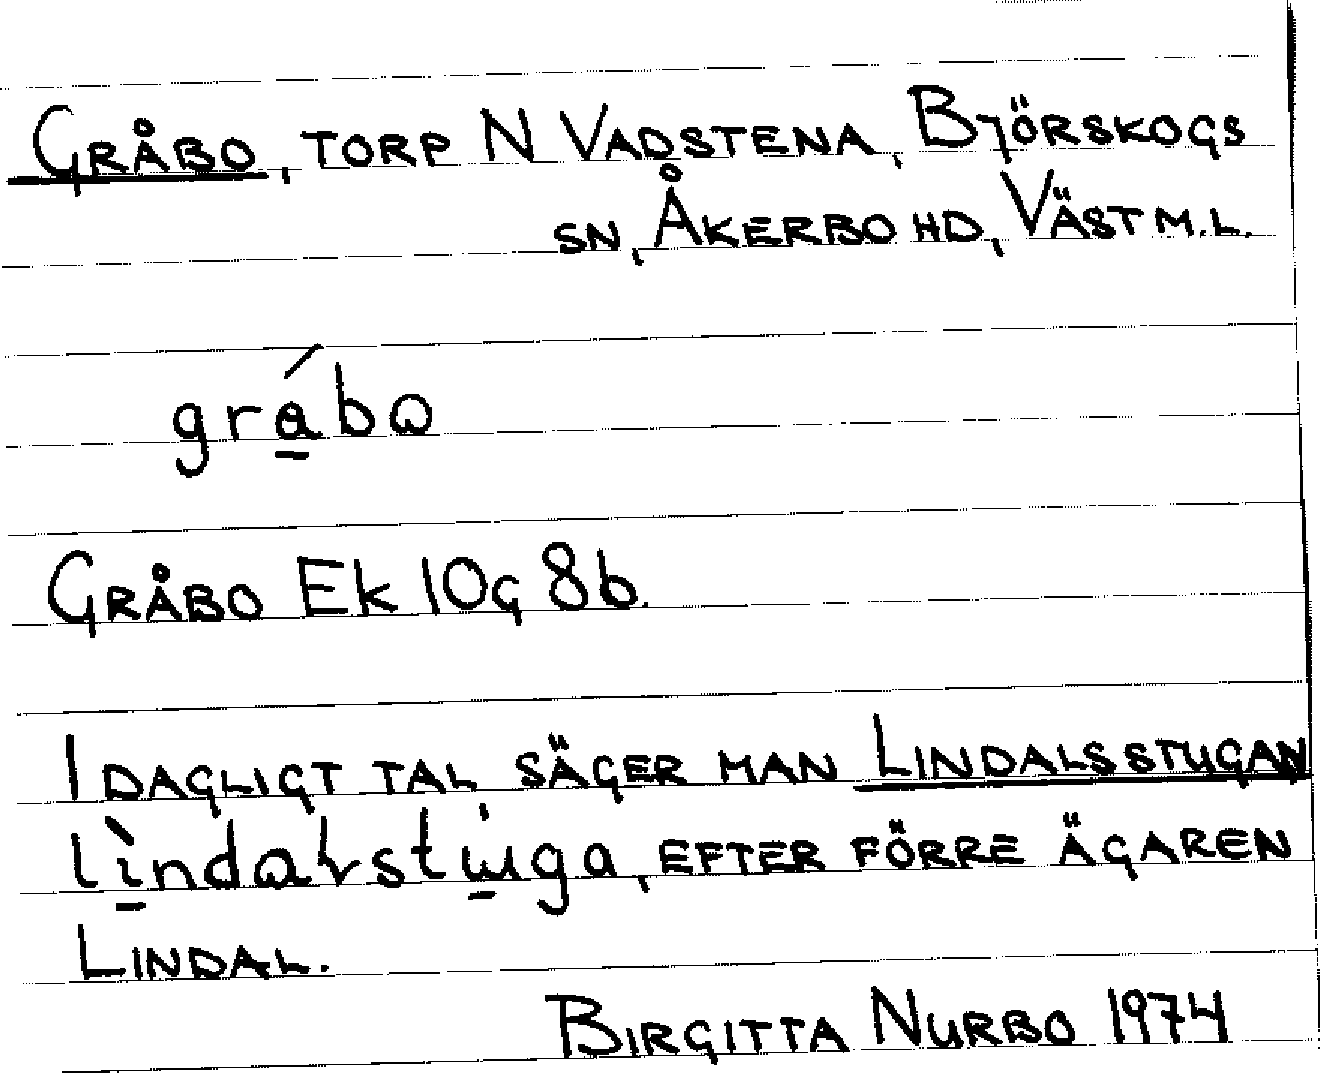 GRÅBO, TORP N VADSTENA, BJÖRSKOGS
SN, ÅKERBO HD, VÄSTM.L.
grábo
GRÅBO EK 10G 8b.
I DAGLIGT TAL, SÄGER MAN LINDALSSTUGAN
lìndalstɯ̇ga, EFTER FÖRRE ÄGAREN
LINDAL.
BIRGITTA NURBO 1974